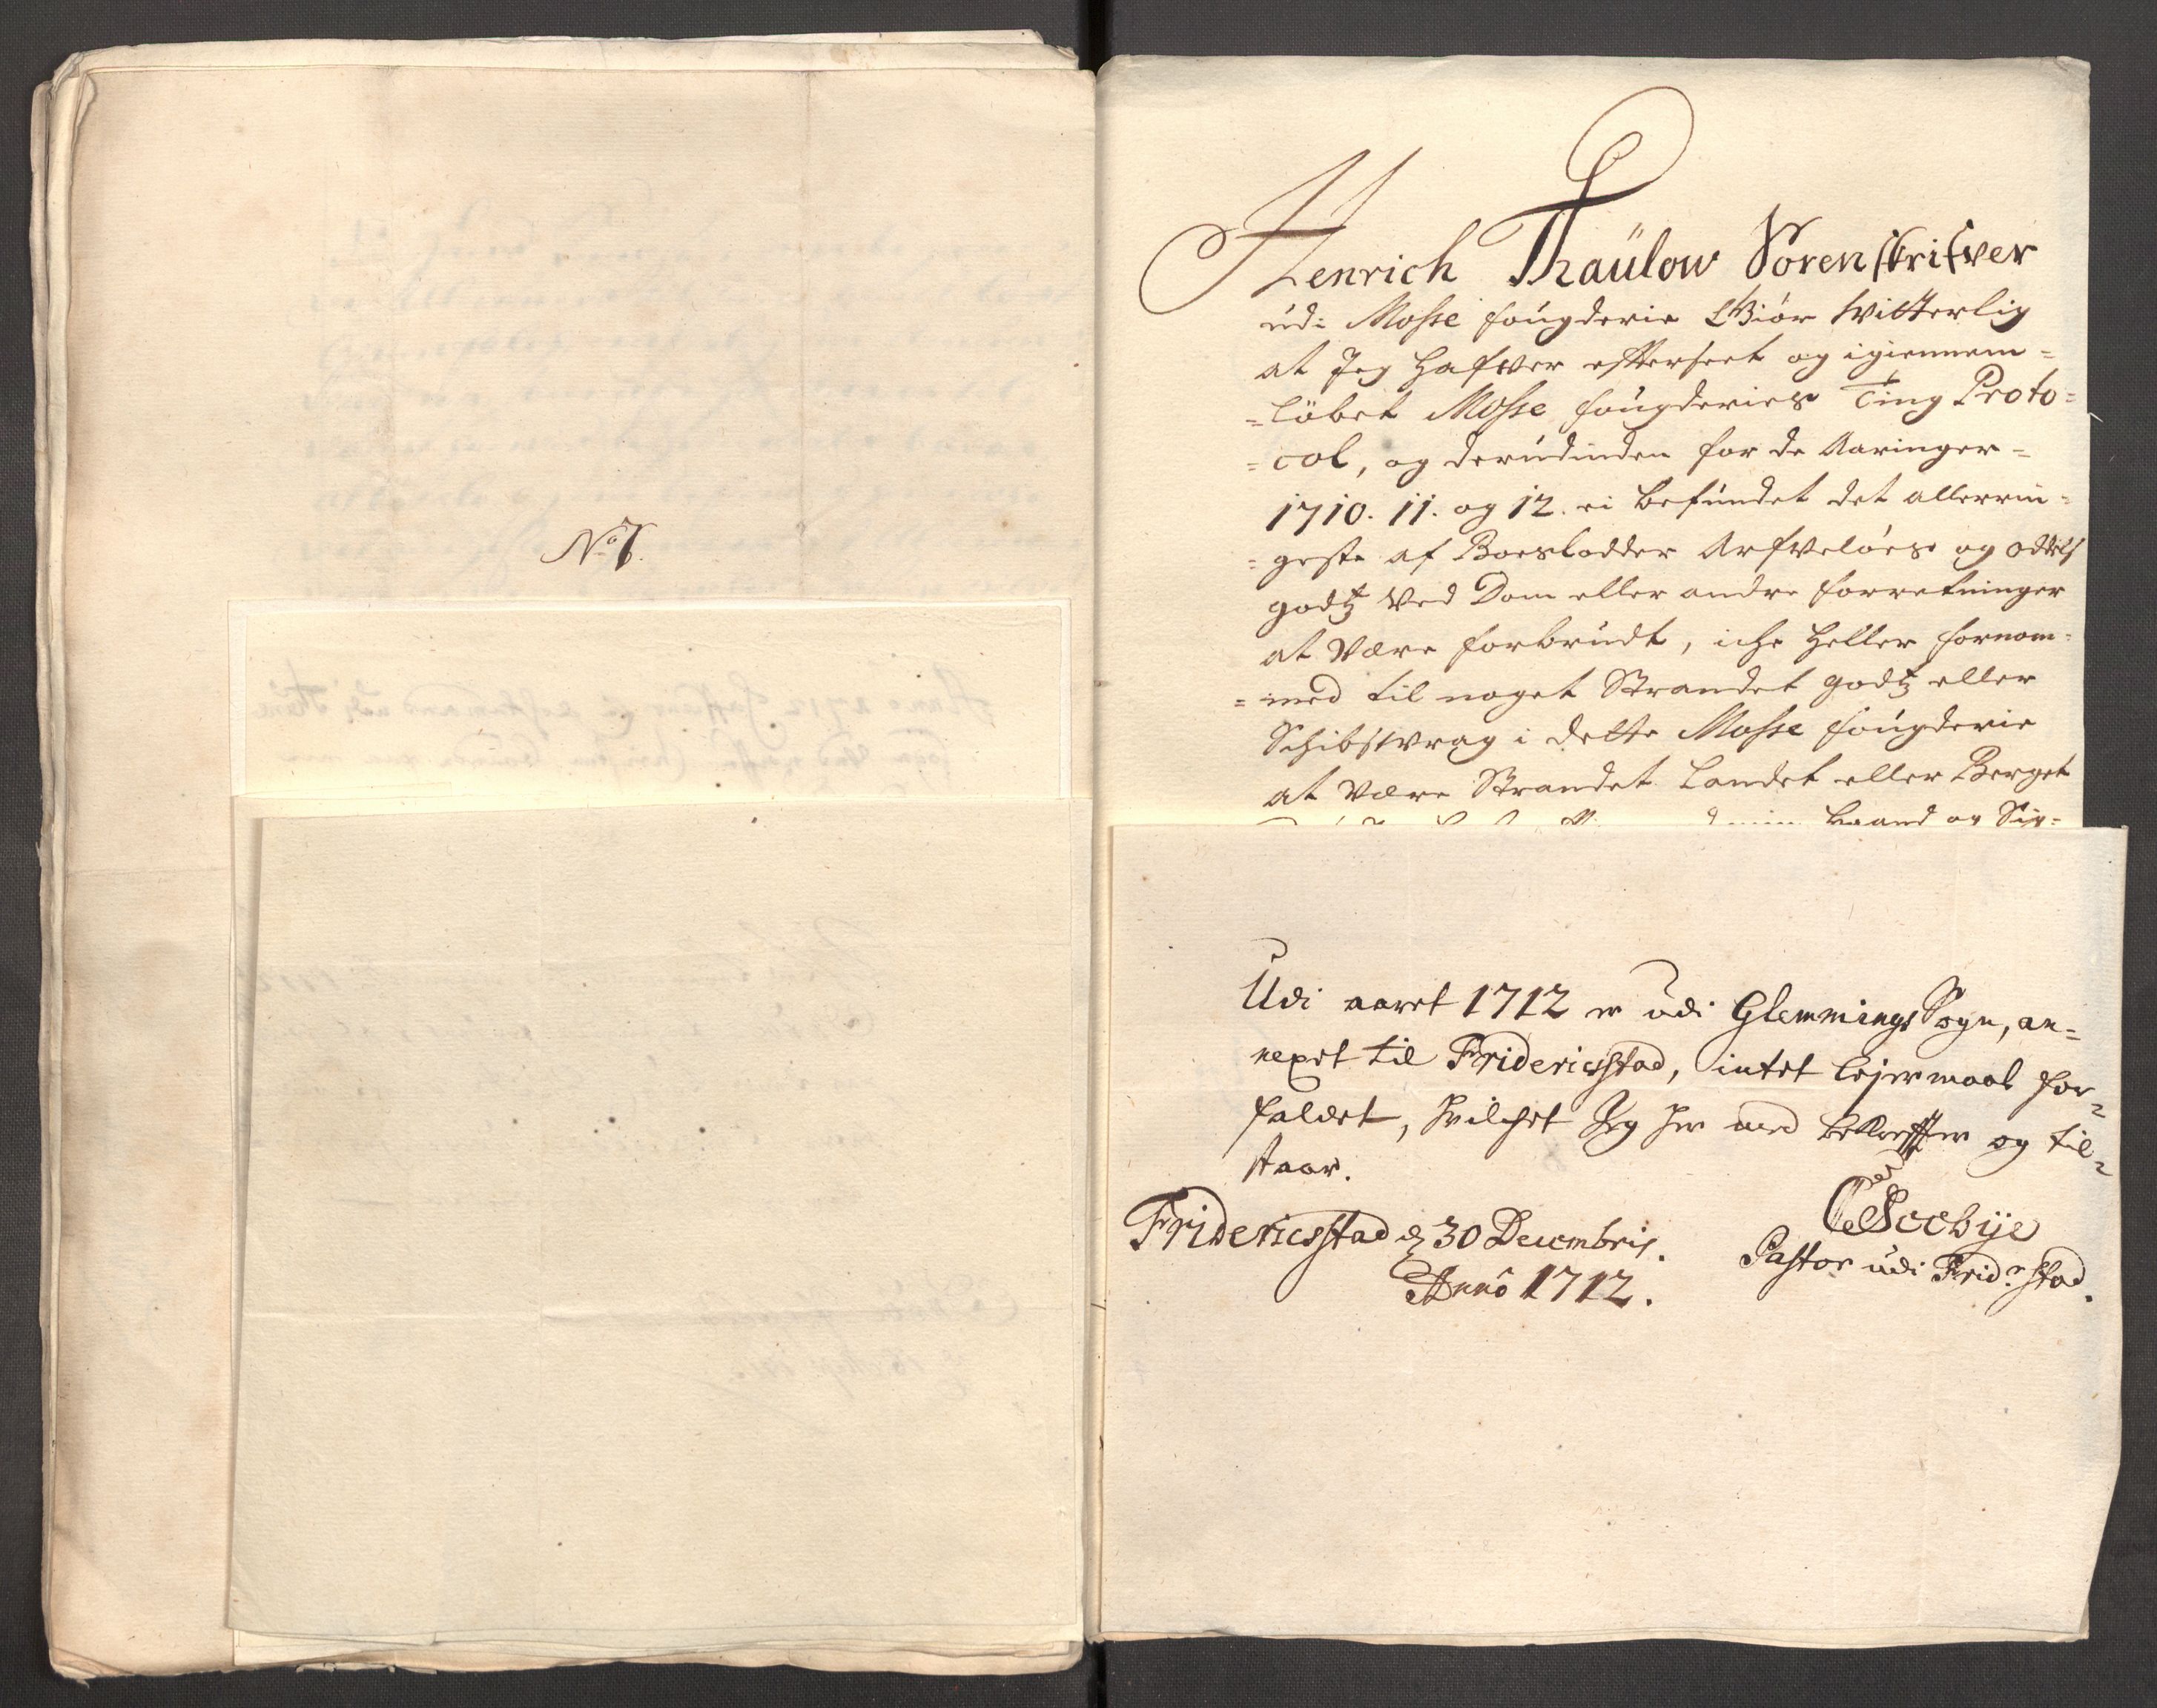 No 7.
Henrich Thaülow Sorenskrifver
ud: Mosse fougderie Giör Witterlig
at Jeg hafver efterseet og igiennem=
=löbet Mosse fougderies Ting Proto=
=col, og derudinden for de Aaringer=
1710. 11. og 12. ei befundet det allerrin=
=geste af Boeslodder Arfvelöes og odels
godtz Ved Dom eller andre forretninger
at Være forbrudt, iche heller fornom=
=med til noget Strandet godtz eller
Schibswrag i dette Mosse fougderie
at Være Strandet Landet eller Berget
min haand og Sig=
Udi aaret 1712 er udi Glemmings Sogn, an=
nexet til Fridericsstad, intet lejermaal for=
faldet, hvilchet Jeg her med bekreffter og til=
staar.
Fridericsstad d 30 Decembris.
Annô 1712.
Seebÿe
Pastor udi Frid:stad.